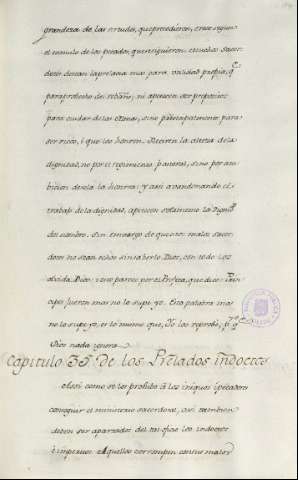 grandeza de las virtudes, que precedieron, crece segun
el cumulo de los pecados, que se siguieron. Muchos sacer-
dotes desean la prelacia mas para utilidad propia, q̃
para probecho del rebaño, ni apetecen ser prepositos
para cuidar de las otras, sino principalmente para
ser ricos, i que los honren. Reciven la alteza de la
dignidad, no por el regimiento pastoral, sino por am-
bicion de sola la honrra: y asi avandonando el
trabajo de la dignidad, apetecen solamente la Digni
del nombre. Sin embargo de que los malos sacer-
dotes no sean niños sin saberlo Dios, con todo los
olvida Dios como parece por el Profeta, que dice Prin-
cipes fueron mas no lo supe yo. Esta palabra mas
no lo supe yo, es lo mismo que, Yo los reprobé, p.q̃
Dios nada ignora
Capitulo 35. de los Prelados indoctos
Asi como se les prohibe à los iniquos i pecadores
conseguir el ministerio sacerdotal, asi tambien
deben ser apartados del tal oficio los indoctos
i imperitos. Aquellos corrompen con sus malos